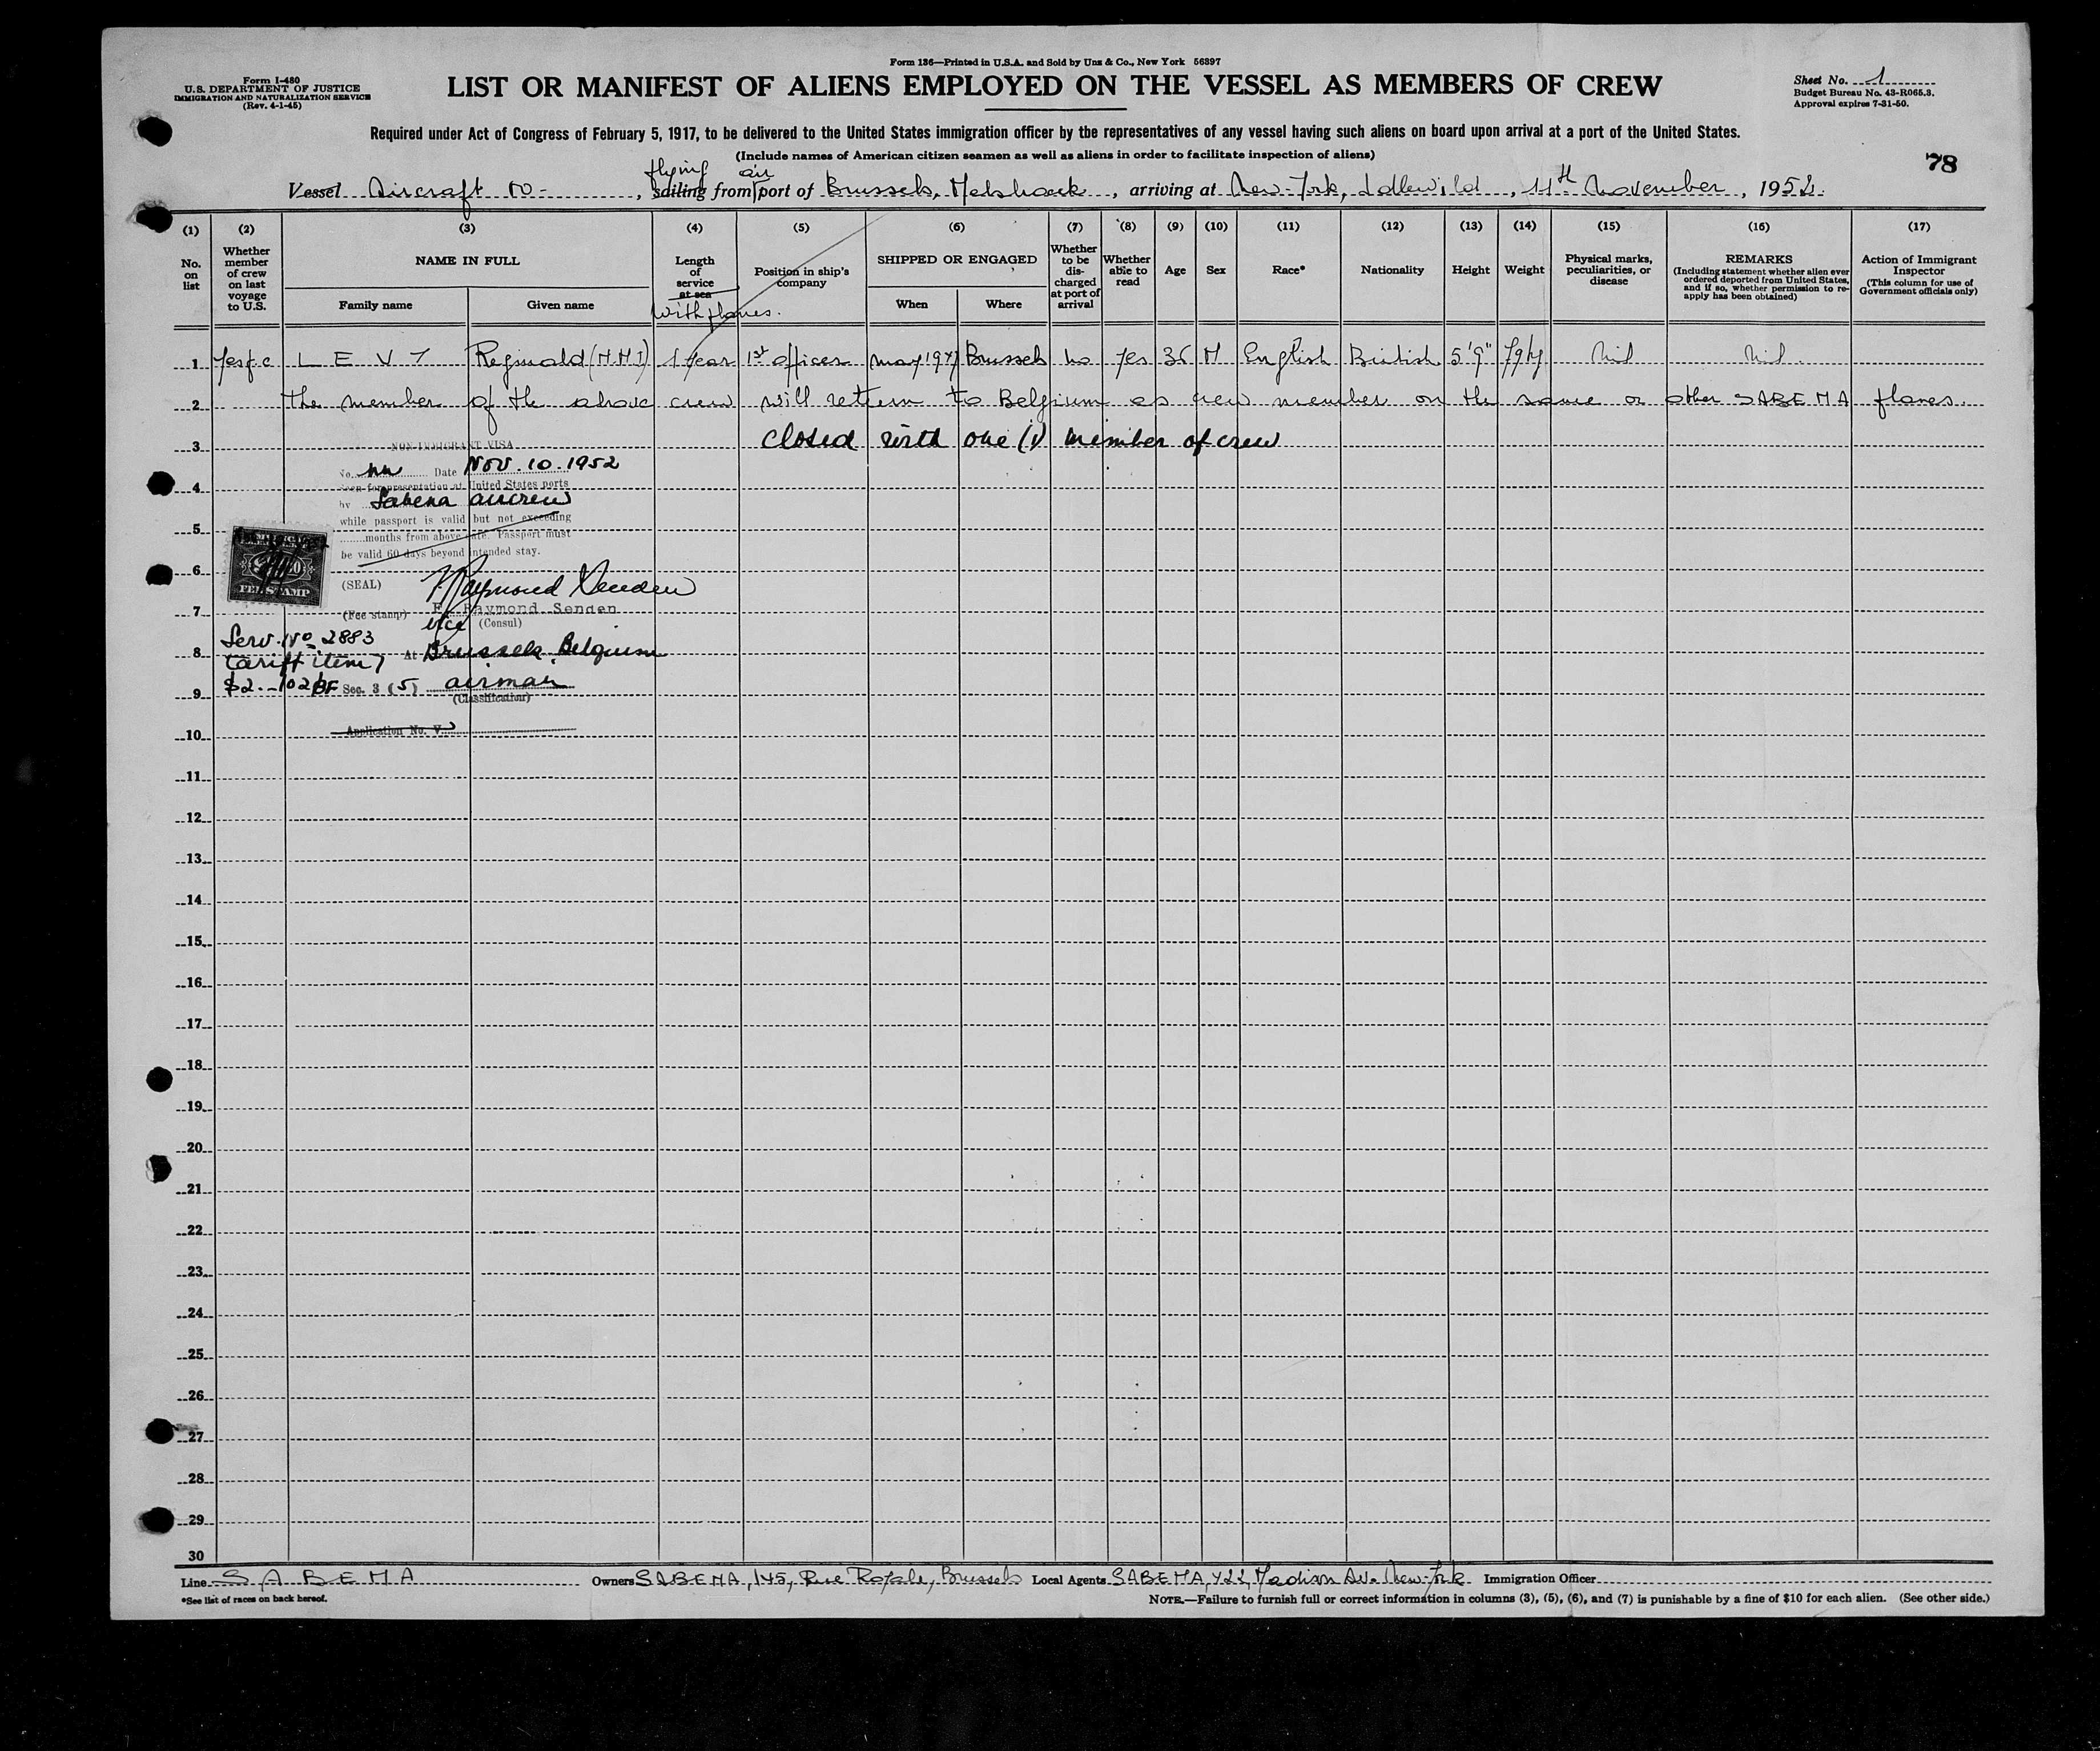 Form 136—Printed in U.S.A. and Sold by Unz & Co., New York 56397
Form I-480
U.S. DEPARTMENT OF JUSTICE
IMMIGRATION AND NATURALIZATION SERVICE
(Rev. 4-1-45)
LIST OR MANIFEST OF ALIENS EMPLOYED ON THE VESSEL AS MEMBERS OF CREW
Sheet No. 1
Budget Bureau No. 43-R065.3.
Approval expires 7-31-50.
Required under Act of Congress of February 5, 1917, to be delivered to the United States immigration officer by the representatives of any vessel having such aliens on board upon arrival at a port of the United States.
(Include names of American citizen seamen as well as aliens in order to facilitate inspection of aliens)
78
flying air
Vessel Aircraft OO- , sailing from port of Brussels, Melsbroek , arriving at New-York, Idlewild , 11th November , 1952.
(1) (2) (3) (4) (5) (6) (7) (8) (9) (10) (11) (12) (13) (14) (15) (16) (17)
No. on list
Whether member of crew on last voyage to U.S.
NAME IN FULL
Family name
Given name
Length of service at sea
with planes.
Position in ship's company
SHIPPED OR ENGAGED
When
Where
Whether to be discharged at port of arrival
Whether able to read
Age
Sex
Race*
Nationality
Height
Weight
Physical marks, peculiarities, or disease
REMARKS
(Including statement whether alien ever ordered deported from United States, and if so, whether permission to re-apply has been obtained)
Action of Immigrant Inspector
(This column for use of Government officials only)
1 LEVY Reginald 1 year 1st officer may Brussels no yes M English British 5'9" Nil Nil.
2 the member of the above crew will return to Belgium as crew member on the same or other SABENA planes.
3 closed with one (1) member of crew
NON-IMMIGRANT VISA
No. Date NOV. 10. 1952
4
Seen for presentation at United States ports
by Sabena aircrew
while passport is valid but not exceeding
5
months from above date. Passport must
be valid 60 days beyond intended stay.
6
AMERICAN
FEE STAMP
(SEAL)
F. Raymond Senden
7
(Fee stamp)
vice (Consul)
Serv. No. 2883
8
tariff item 7
At Brussels, Belgium
$2.-102 BF
Sec. 3 (5) airman
9
(Classification)
Application No. V
10
11
12
13
14
15
16
17
18
19
20
21
22
23
24
25
26
27
28
29
30
Line SABENA Owners SABENA, 145, Rue Royale, Brussels Local Agents SABENA, 422, Madison Av. New-York Immigration Officer
*See list of races on back hereof.
NOTE.—Failure to furnish full or correct information in columns (3), (5), (6), and (7) is punishable by a fine of $10 for each alien. (See other side.)